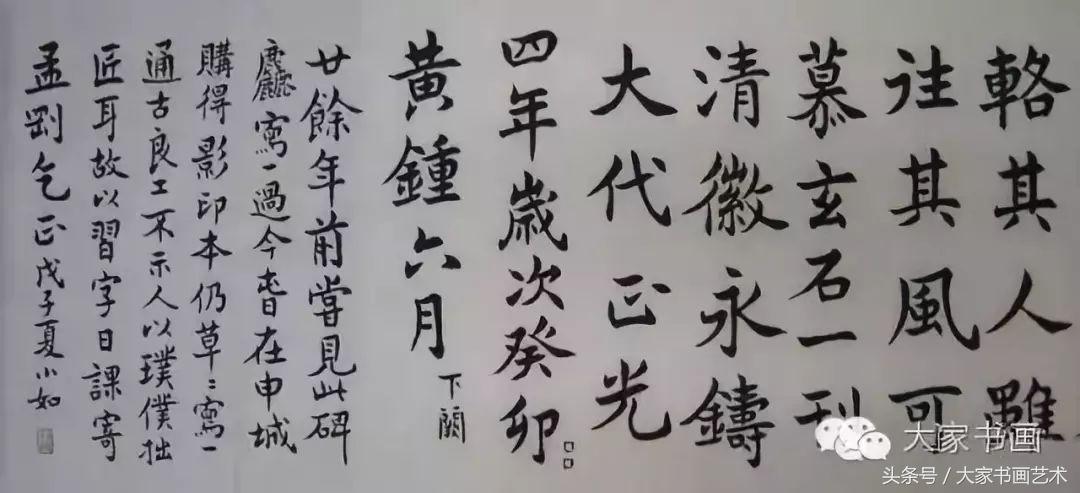 輅其人雖
往其風可
慕玄石一刊
清徽永鑄
大代正光
四年歲次癸卯□□
黃鍾六月
下闕
廿餘年前嘗見此碑
麤寫一過今春在申城
購得影印本仍草〻寫一
通古良工不示人以璞僕拙
匠耳故以習字日課寄
孟剛乞正戊子夏小如
大家书画
头条号/大家书画艺术